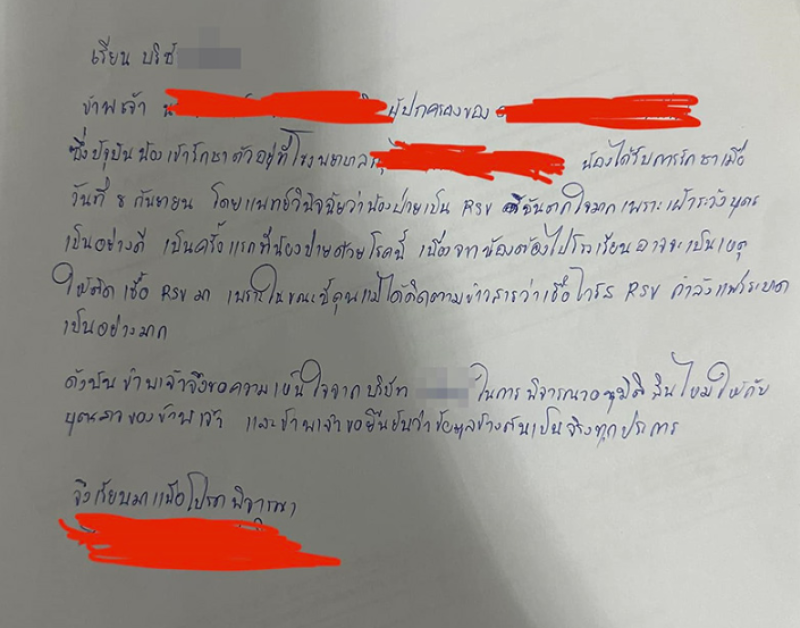 เรียน บริษั
ข้าพเจ้า น ผู้ปกครองของ
ซึ่งปัจุบันน้องเข้ารักษาตัวอยู่ที่โรงพยาบาล น้องได้รับการรักษาเมื่อ
วันที่ 8 กันยายน โดยแพทย์วินิจฉัยว่าน้องป่วยเป็น RSV ดิฉันตกใจมากเพราะเฝ้าระวังบุตร
เป็นอย่างดี เป็นครั้งแรกที่น้องป่วยด้วยโรคนี้ เนื่องจากน้องต้องไปโรงเรียนอาจจะเป็นเหตุ
ให้ติดเชื้อ RSV มา เพราะในขณะนี้คุณแม่ได้ติดตามข่าวสารว่าเชื้อไวรัส RSV กำลังแพร่ระบาด
เป็นอย่างมาก
ดังนั้นข้าพเจ้าจึงขอความเห็นใจจากบริษัท ในการพิจารณาอนุมัติสินไหมให้กับ
บุตรสาวของข้าพเจ้า และข้าพเจ้าขอยืนยันว่าข้อมูลข้างต้นเป็นจริงทุกประการ
จึงเรียนมาเพื่อโปรดพิจารณา